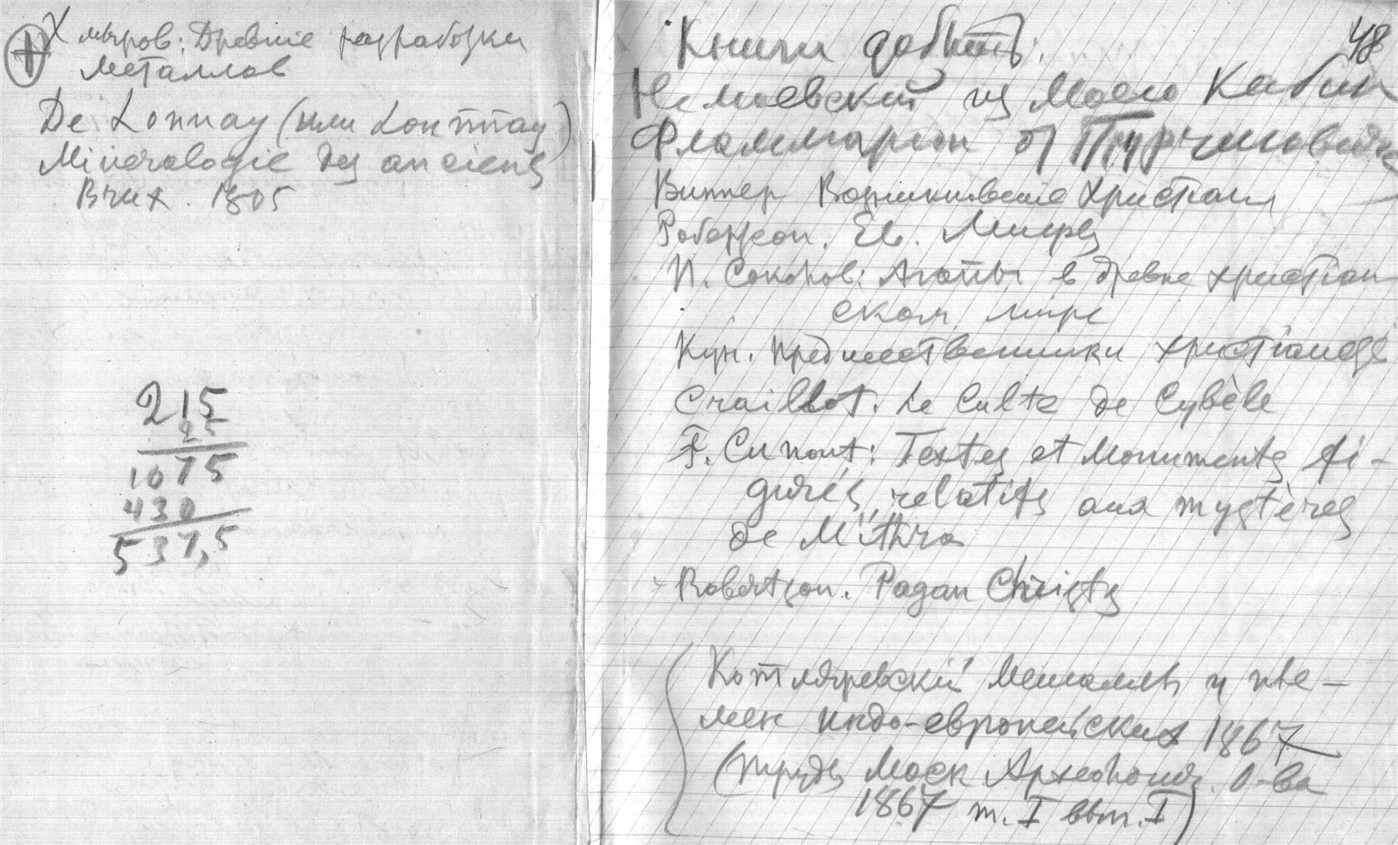 Хмыров: Древние разработки
металлов
De Lonnay (или Lonnnay)
Mineralogie des anciens
Brux. 1805
215
25
1075
430
537,5
48
Книги добыть:
Немоевский из Моего Кабин
Фламмарион от
Виппер Возникновение Христиан
Робертсон. Ев. Мифы
П. Соколов: Агапы в древне христиан
ском мире
Кун. Предшественники христианст
Craillot. Le Culte de Cybèle
F. Cumont: Textes et Monuments fi-
gurés, relatifs aux mystères
de Mithra
Robertson. Pagan Christs
(Котляревский Металлы у пле-
мен индо-европейских 1867
(труды Моск Археолог. О-ва
1867 т. I вып. I)